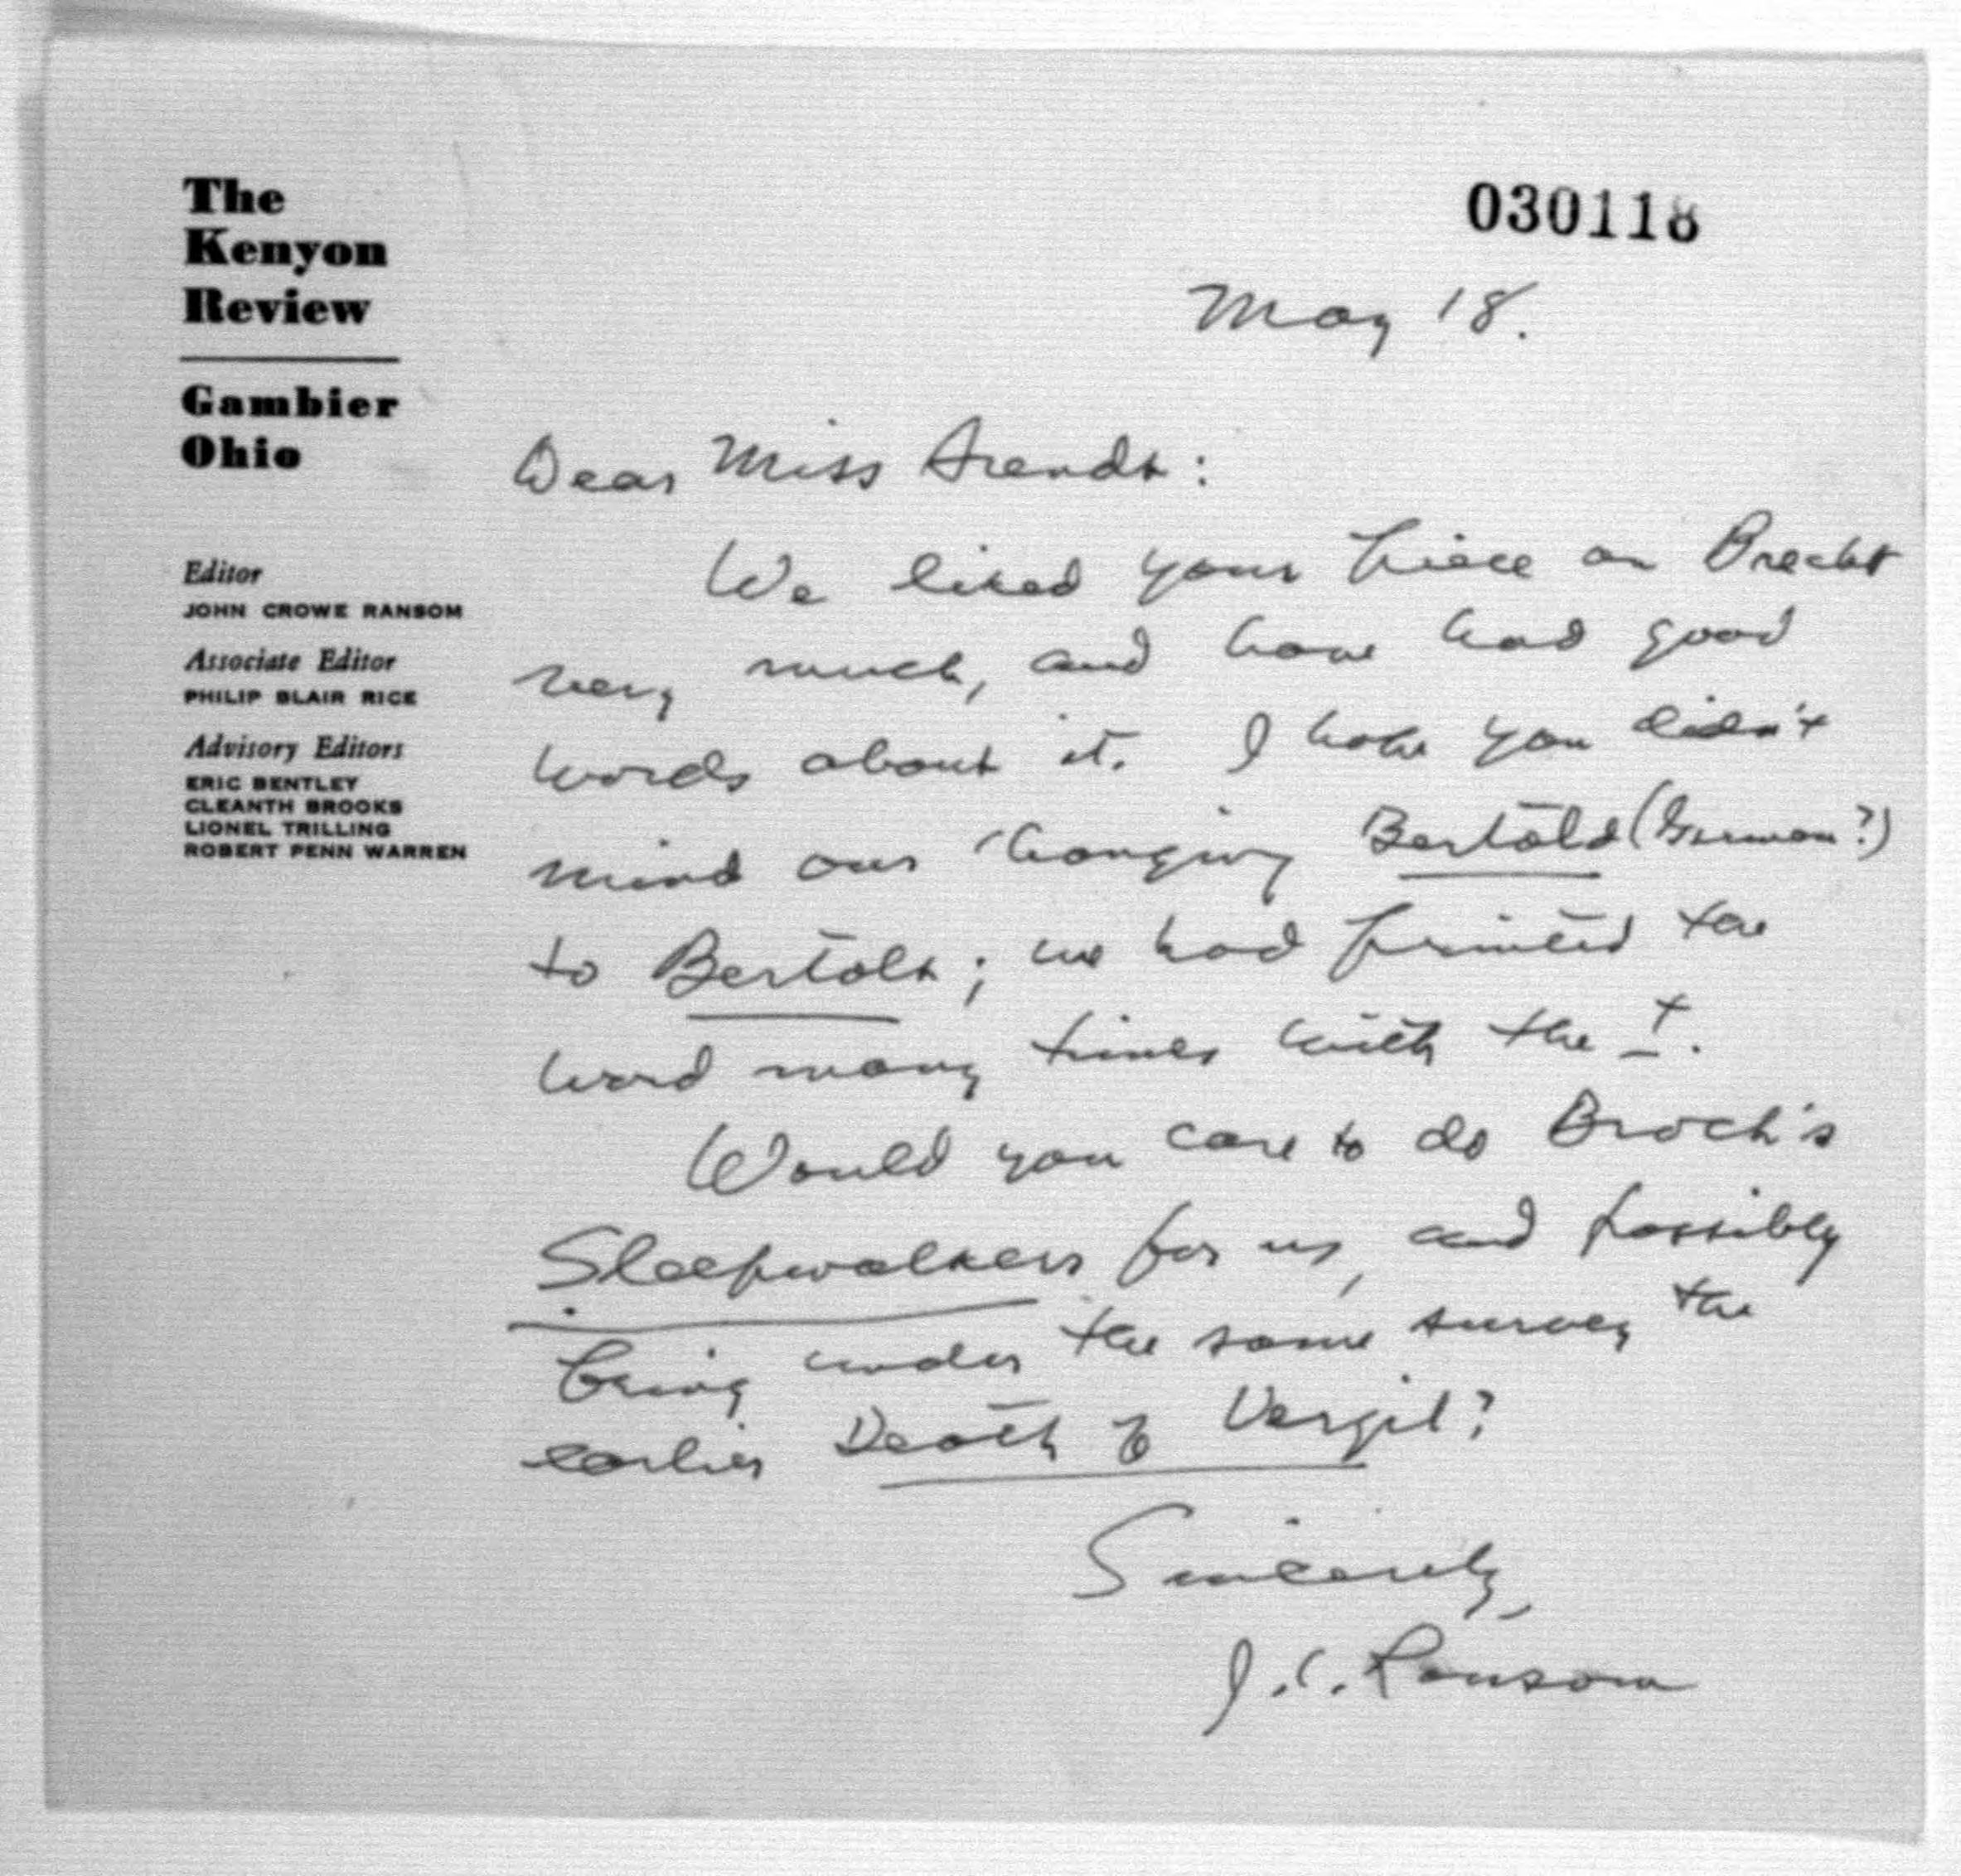 The
Kenyon
Review
Gambier
Ohio
Editor
JOHN CROWE RANSOM
Associate Editor
PHILIP BLAIR RICE
Advisory Editors
ERIC BENTLEY
CLEANTH BROOKS
LIONEL TRILLING
ROBERT PENN WARREN
030118
May 18.
Dear Miss Arendt:
We liked your piece on Brecht
very much, and have had good
words about it. I hope you didn't
mind our changing Bertold (German?)
to Bertolt; we had printed the
word many times with the t.
Would you care to do Broch's
Sleepwalkers for us, and possibly
bring under the same survey the
earlier Death of Vergil?
Sincerely,
J.C. Ransom